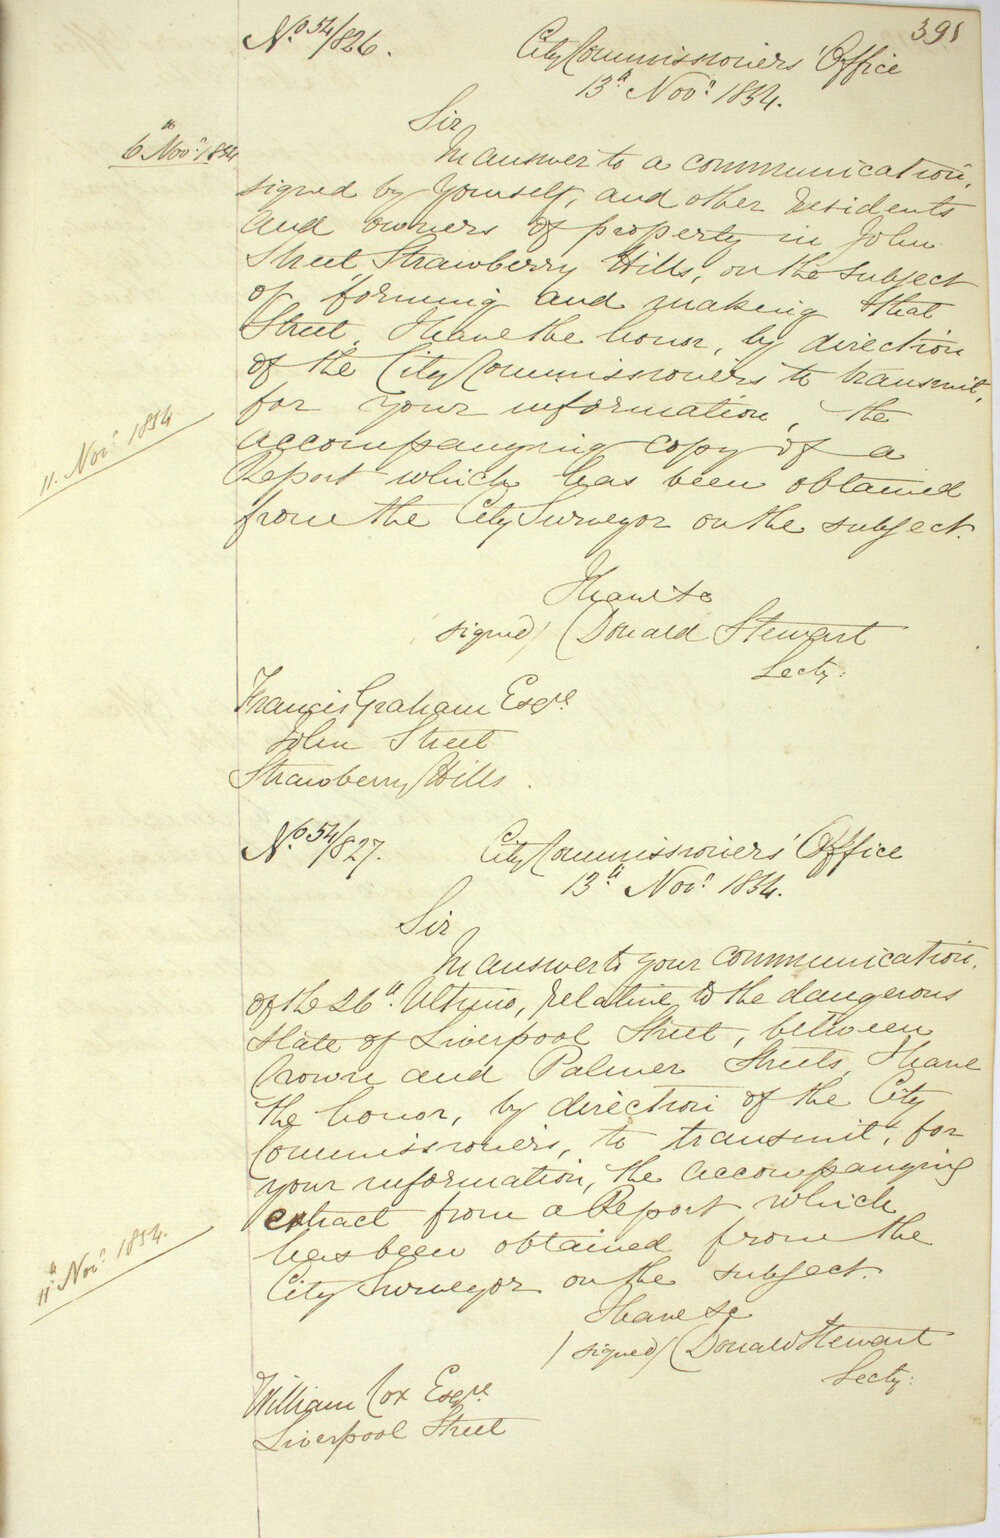 391
No. 54/826.
City Commissioners' Office
13th Novr. 1854.
Sir
6th Novr. 1854
In answer to a communication,
signed by yourself, and other residents
and owners of property in John
Street, Strawberry Hills, on the subject
of forming and making that
Street, I have the honor, by direction
of the City Commissioners to transmit,
for your information, the
11. Novr. 1854
accompanying copy of a
Report which has been obtained
from the City Surveyor on the subject.
I have &c
(signed) Donald Stewart
Secty:
Francis Graham Esqre.
John Street
Strawberry Hills.
No. 54/827.
City Commissioners' Office
13th Novr. 1854.
Sir
In answer to your communication
of the 26th. Ultimo, relative to the dangerous
state of Liverpool Street, between
Crown and Palmer Streets, I have
the honor, by direction of the City
Commissioners, to transmit, for
your information, the accompanying
11th Novr. 1854.
extract from a Report which
has been obtained from the
City Surveyor on the subject.
I have &c
(signed) Donald Stewart
Secty:
William Cox Esqre.
Liverpool Street